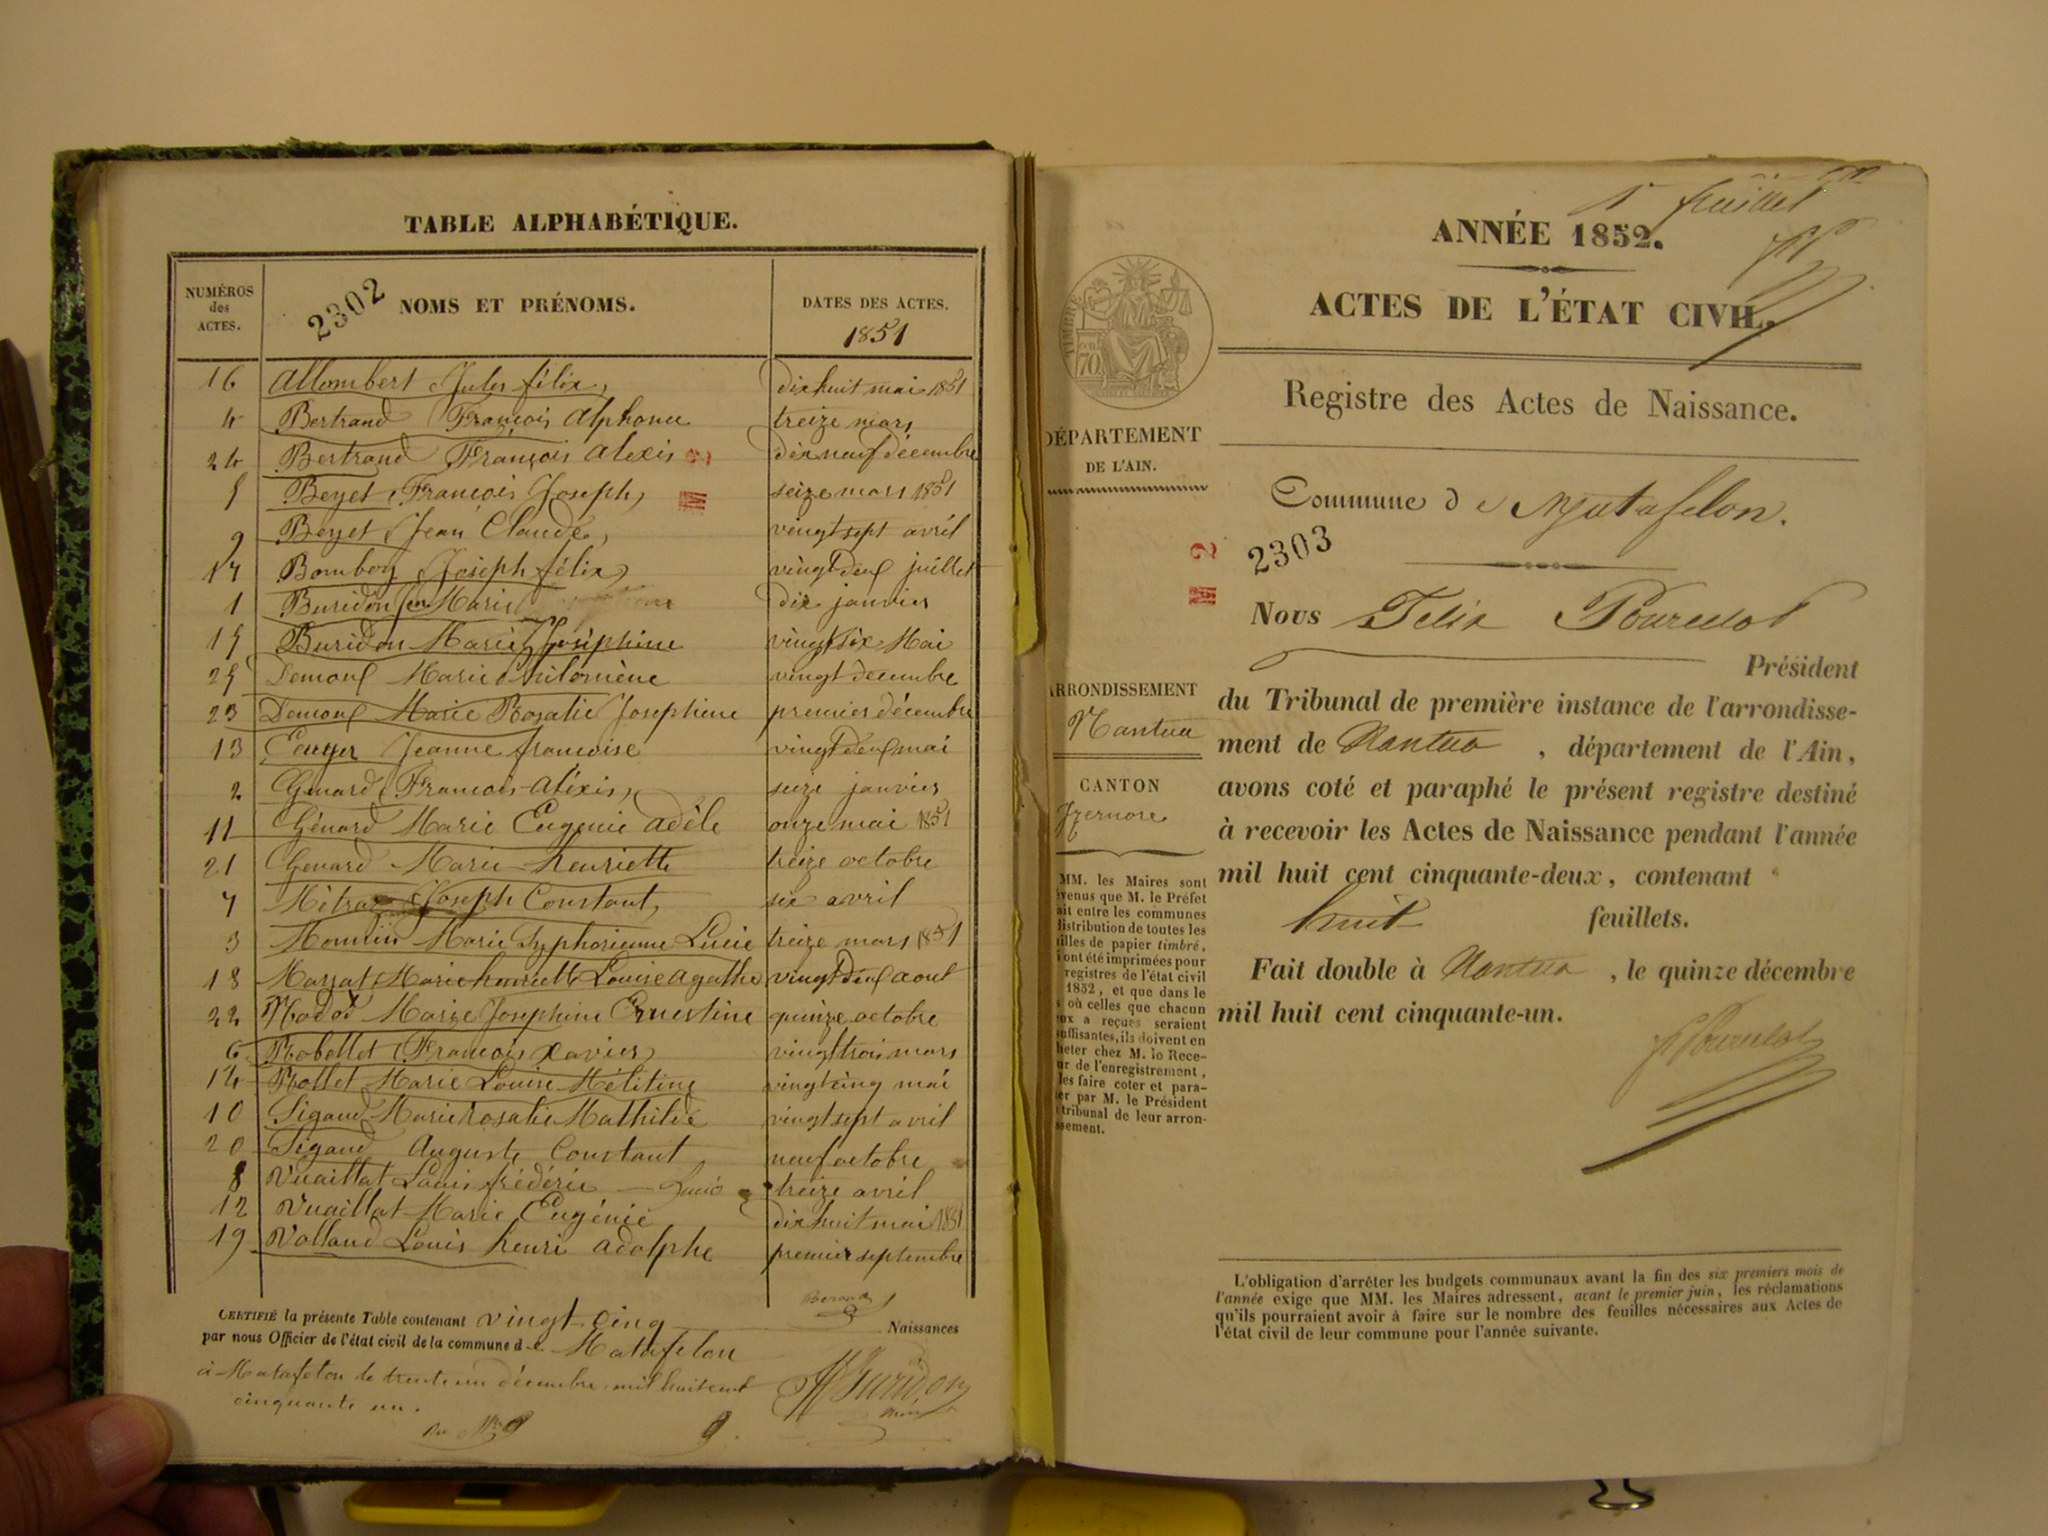 TABLE ALPHABÉTIQUE.
NUMÉROS des ACTES.
2302
NOMS ET PRÉNOMS.
DATES DES ACTES.
1851
16 Allombert Jules félix, dix huit mai 1851
4 Bertrand François Alphonse treize mars
24 Bertrand François Alexis dix neuf décembre
5 Beyet François Joseph, seize mars 1851
9 Beyet Jean Claude, vingt sept avril
17 Bomboy Joseph félix vingt deux juillet
1 Buridon Jean Marie dix janvier
15 Buridon Marie Joséphine vingt six Mai
25 Demoux Marie Philomène vingt décembre
23 Demoux Marie Rosalie Josephine premier décembre
13 Jeanne françoise vingt deux mai
2 Génard François Alexis, seize janvier
11 Génard Marie Eugenie adèle onze mai 1851
21 Génard Marie henriette treize octobre
7 Joseph Constant, six avril
3 Marie Symphorienne Lucie treize mars 1851
18 Marie henriette Louise Agathe vingt Deux aout
22 Marie Josephine Ernestine quinze octobre
6 Robellet François Xavier vingt trois mars
14 Rollet Marie Louise Mélitine vingt cinq mai
10 Sigaud Marie Rosalie Mathilde vingt sept avril
20 Sigaud Auguste Constant neuf octobre
8 Vuaillat Louis frédéric treize avril
12 Vuaillat Marie Eugénie dix huit mai 1851
19 Volland Louis henri adolphe premier septembre
CERTIFIÉ la présente Table contenant vingt cinq Naissances
par nous Officier de l'état civil de la commune de Matafelon
à Matafelon le trente un décembre mil huit cent
cinquante un.
Buridon
1er feuillet
ANNÉE 1852.
ACTES DE L'ÉTAT CIVIL.
TIMBRE
70
Registre des Actes de Naissance.
DÉPARTEMENT
DE L'AIN.
Commune de Matafelon.
2303
Nous Félix
Président
ARRONDISSEMENT
Nantua
CANTON
Izernore
du Tribunal de première instance de l'arrondisse-
ment de Nantua, département de l'Ain,
avons coté et paraphé le présent registre destiné
à recevoir les Actes de Naissance pendant l'année
mil huit cent cinquante-deux, contenant
huit feuillets.
Fait double à Nantua, le quinze décembre
mil huit cent cinquante-un.
MM. les Maires sont
venus que M. le Préfet
ait entre les communes
distribution de toutes les
illes de papier timbré,
ont été imprimées pour
registres de l'état civil
1852, et que dans le
où celles que chacun
ux a reçues seraient
uffisantes, ils doivent en
heter chez M. le Rece-
ur de l'enregistrement,
les faire coter et para-
er par M. le Président
tribunal de leur arron-
ssement.
L'obligation d'arrêter les budgets communaux avant la fin des six premiers mois de
l'année exige que MM. les Maires adressent, avant le premier juin, les réclamations
qu'ils pourraient avoir à faire sur le nombre des feuilles nécessaires aux Actes de
l'état civil de leur commune pour l'année suivante.